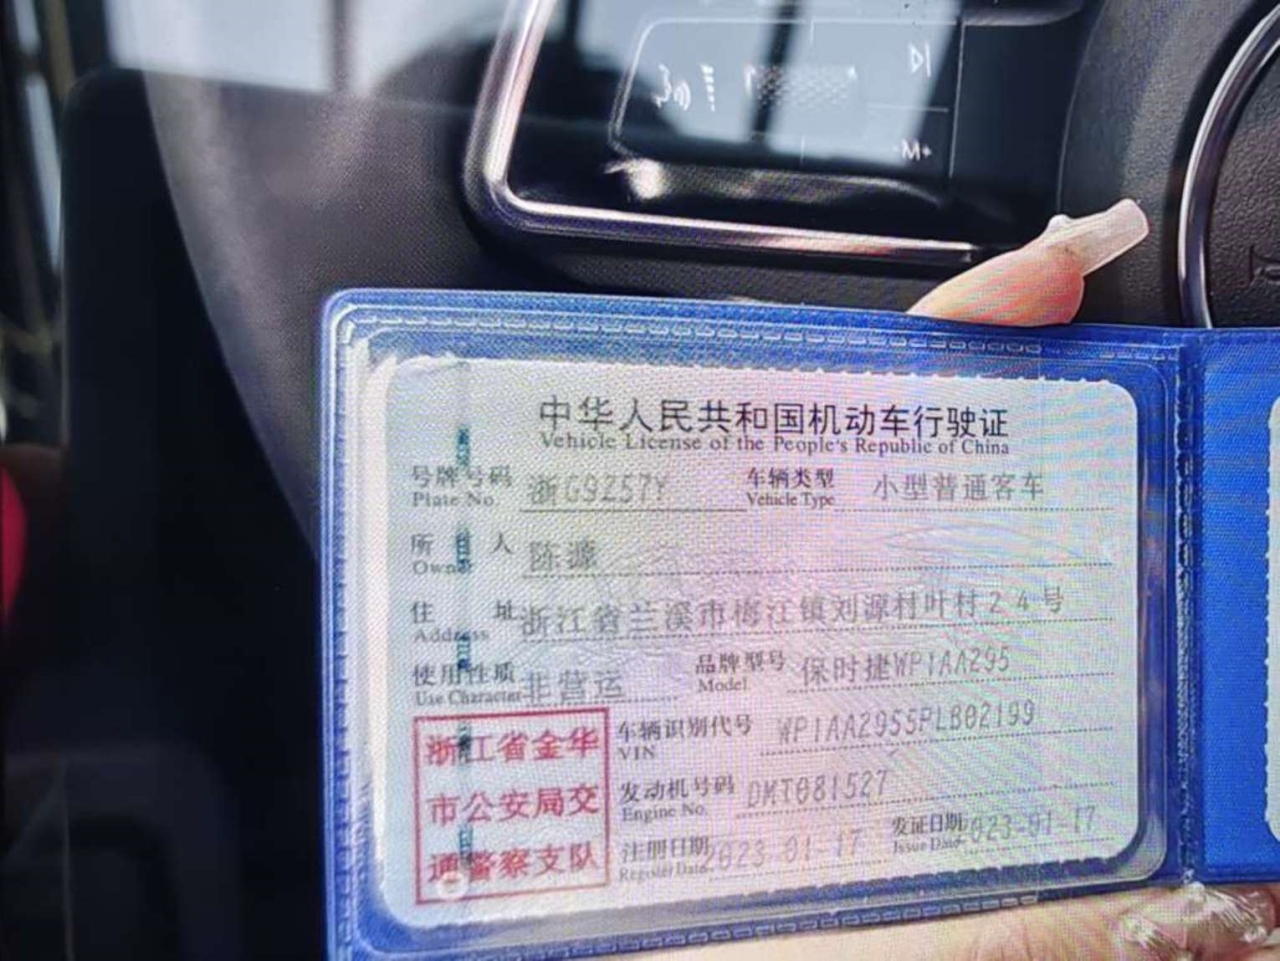 中华人民共和国机动车行驶证
Vehicle License of the People's Republic of China
号牌号码 浙G9Z57Y 车辆类型 小型普通客车
Plate No. Vehicle Type
所 人 陈源
Owne
住 址 浙江省兰溪市梅江镇刘源村叶村24号
Address
使用性质 非营运 品牌型号 保时捷WP1AA295
Use Character Model
浙江省金华
市公安局交
通警察支队
车辆识别代号 WP1AA2955PLB02199
VIN
发动机号码 DMT081527
Engine No.
注册日期 2023-01-17 发证日期 023-01-17
Register Date Issue Date